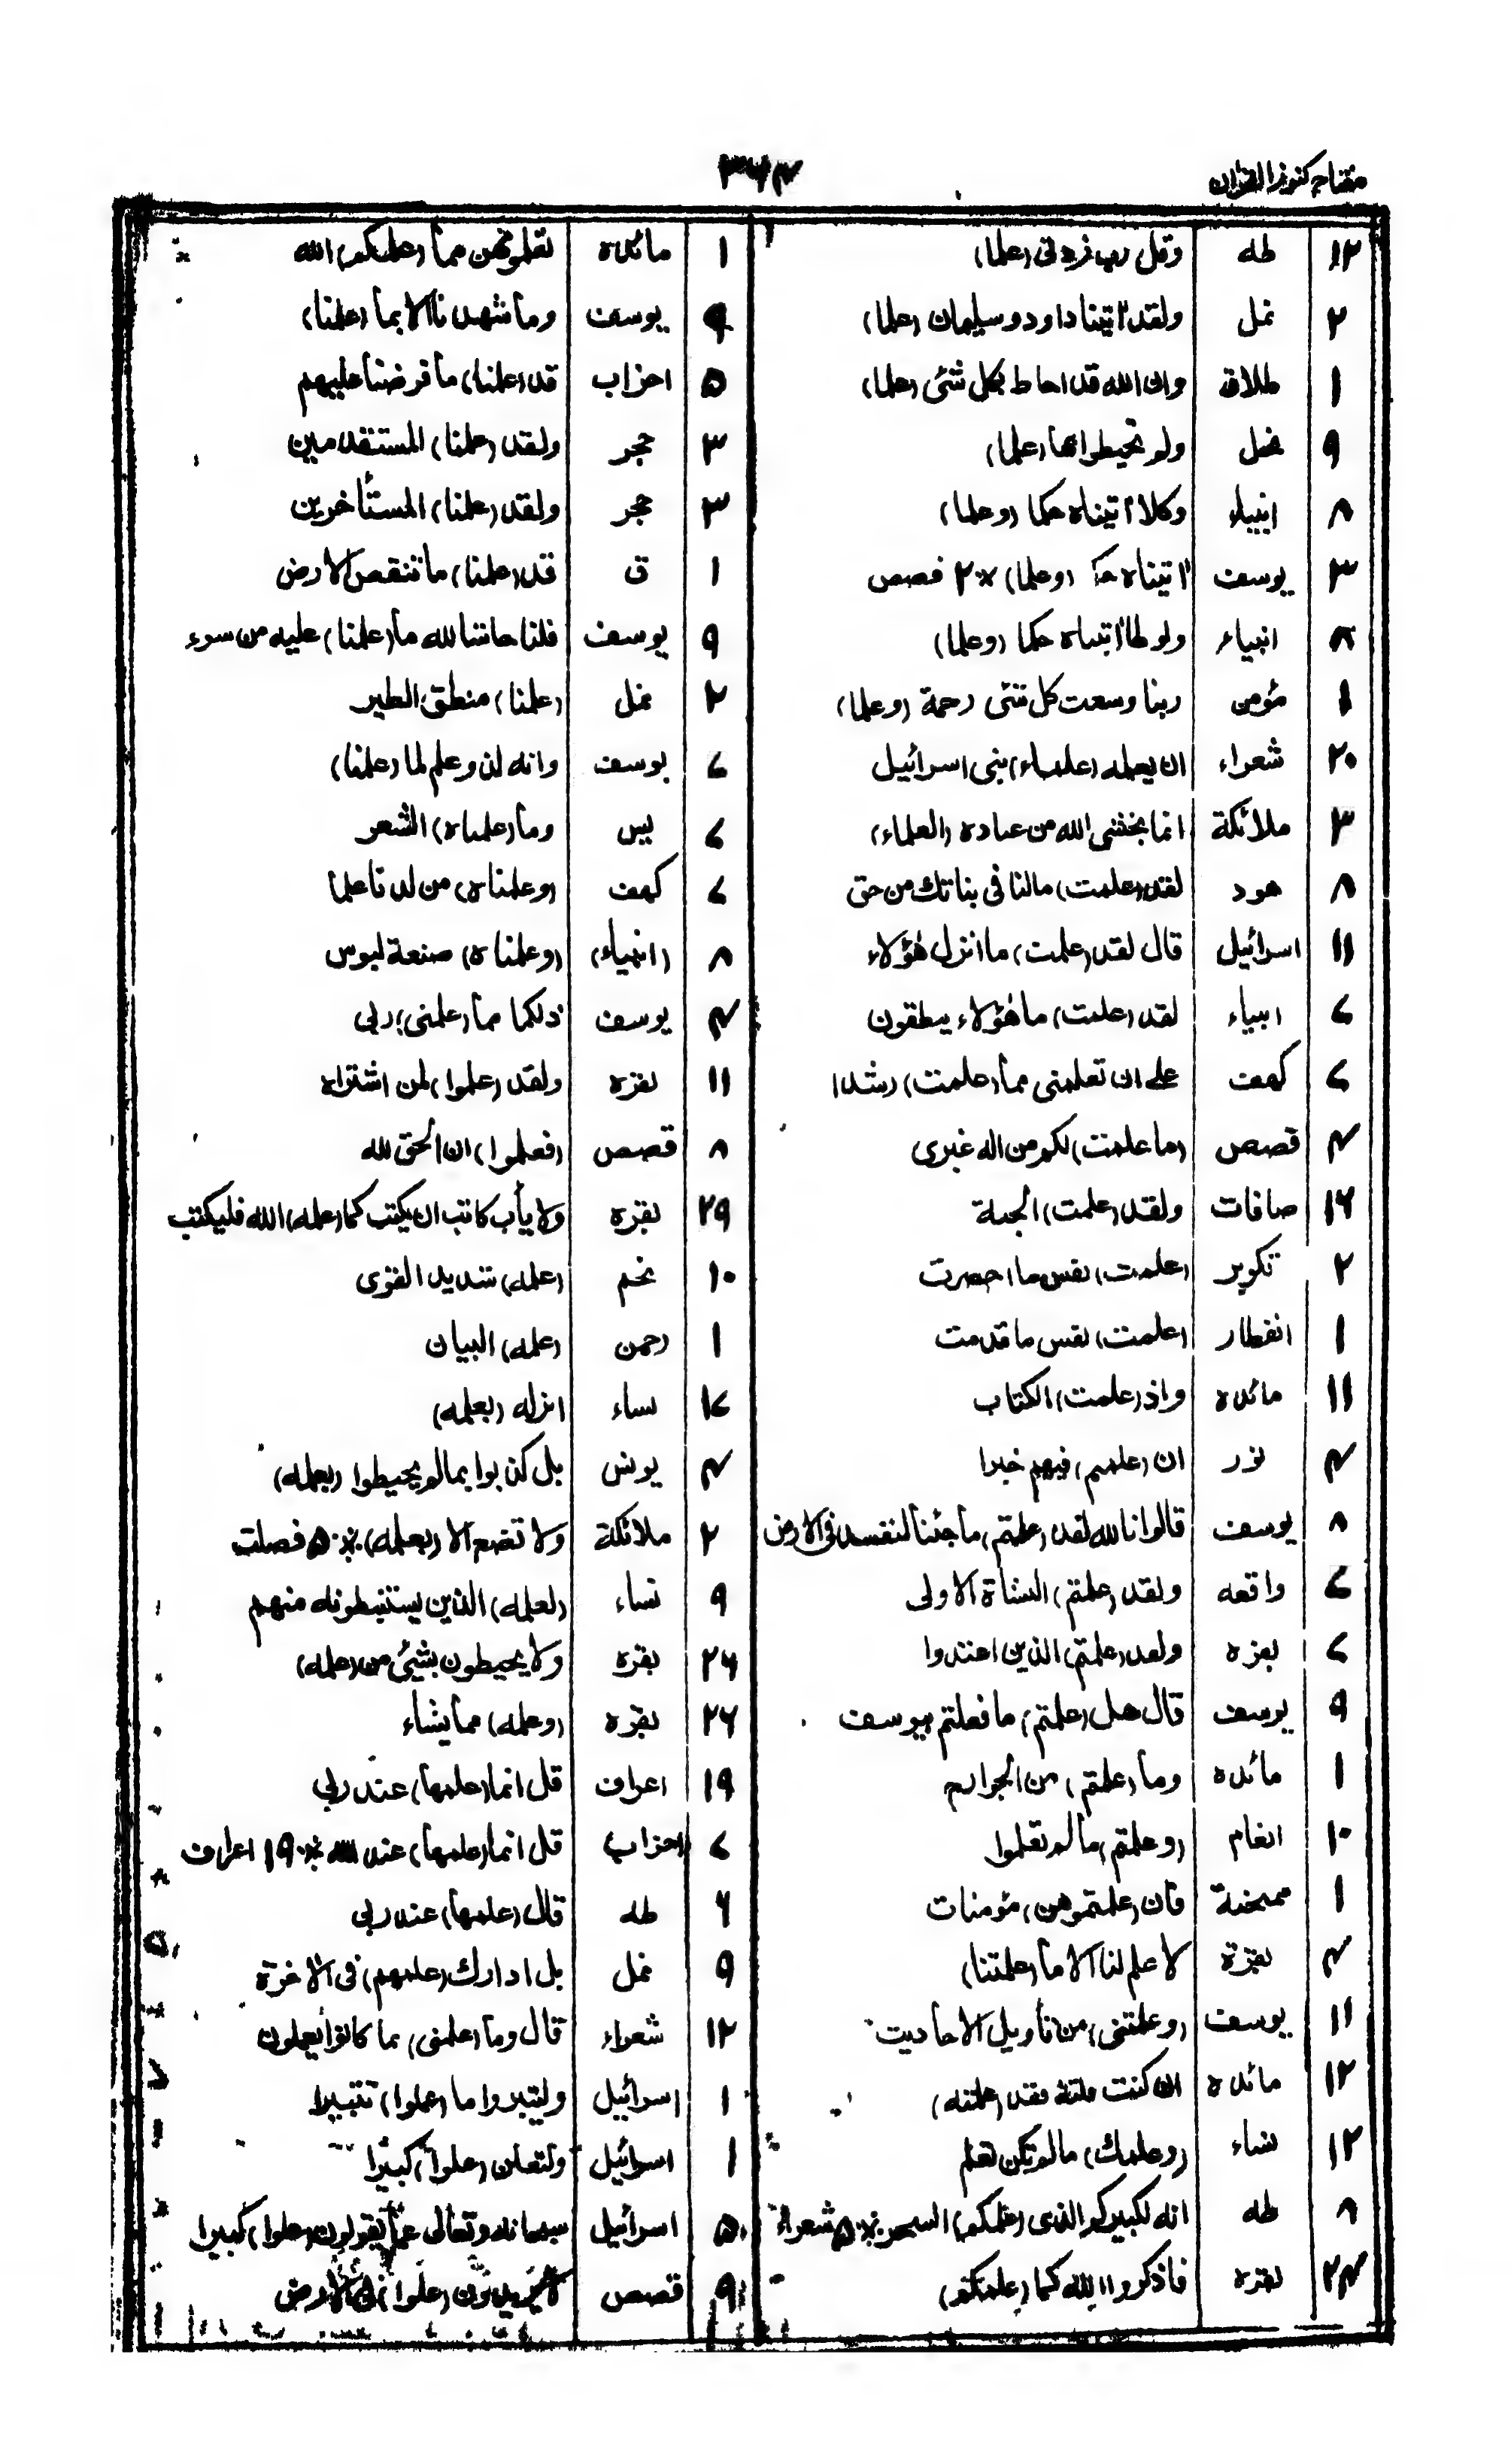 مفتاح كنوز القران
٣٦٤
١٢ طه وقل رب زدنى (علما)
٢ نمل ولقد اتينا داود وسليمان (علما)
١ طلاق وان الله قد احاط بكل شئى (علما)
٩ نمل ولم تحيطوا بها (علما)
٨ انبياء وكلا اتيناه حكما (وعلما)
٣ يوسف اتيناه حكما (وعلما) ٢٠ قصص
٨ انبياء ولوطا اتيناه حكما (وعلما)
١ مؤمن ربنا وسعت كل شئى رحمة (وعلما)
٢٠ شعراء ان يعلمه (علماء) بنى اسرائيل
٣ ملائكة انما يخشى الله من عباده (العلماء)
٨ هود لقد (علمت) مالنا فى بناتك من حق
١١ اسرائيل قال لقد (علمت) ما انزل هؤلاء
٧ انبياء لقد (علمت) ما هؤلاء ينطقون
٧ كهف على ان تعلمنى مما (علمت) رشدا
٤ قصص (ما علمت) لكم من اله غيرى
١٦ صافات ولقد (علمت) الجنة
٢ تكوير (علمت) نفس ما احضرت
١ انفطار (علمت) نفس ما قدمت
١١ مائده واذ (علمت) الكتاب
٤ نور ان (علمتم) فيهم خيرا
٨ يوسف قالوا تا لله لقد (علمتم) ما جئنا لنفسد فى الارض
٧ واقعه ولقد (علمتم) النشاة الاولى
٧ بقره ولقد (علمتم) الذين اعتدوا
٩ يوسف قال هل (علمتم) ما فعلتم بيوسف
١ مائده وما (علمتم) من الجوارح
١٠ انعام (وعلمتم) ما لم تعلموا
١ ممتحنة فان (علمتموهن) مؤمنات
٤ بقرة لا علم لنا الا ما (علمتنا)
١١ يوسف (وعلمتنى) من تاويل الاحاديث
١٢ مائده ان كنت قلته فقد (علمته)
١٢ نساء (وعلمك) ما لم تكن تعلم
٨ طه انه لكبيركم الذى (علمكم) السحر ٥ شعراء
٢٤ بقره فاذكروا الله كما (علمكم)
١ مائده تعلمونهن مما (علمكم) الله
٩ يوسف وما شهدنا الا بما (علمنا)
٥ احزاب قد (علمنا) ما فرضنا عليهم
٣ حجر ولقد (علمنا) المستقدمين
٣ حجر ولقد (علمنا) المستأخرين
١ ق قد (علمنا) ما تنقص الارض
٩ يوسف قلنا حاشا لله ما (علمنا) عليه من سوء
٢ نمل (علمنا) منطق الطير
٧ يوسف وانه لذو علم لما (علمنا)
٧ يس وما (علمناه) الشعر
٧ كهف (وعلمناه) من لدنا علما
٨ (انبياء) (وعلمناه) صنعة لبوس
٤ يوسف ذلكما مما (علمنى) ربى
١١ بقره ولقد (علموا) لمن اشتراه
٨ قصص (فعلموا) ان الحق لله
٢٩ بقره ولا يأب كاتب ان يكتب كما (علمه) الله فليكتب
١٠ نجم (علمه) شديد القوى
١ رحمن (علمه) البيان
١٧ نساء انزله (بعلمه)
٤ يونس بل كذبوا بما لم يحيطوا (بعلمه)
٢ ملائكة ولا تضع الا (بعلمه) ٥ فصلت
٩ نساء (لعلمه) الذين يستنبطونه منهم
٢٤ بقره ولا يحيطون بشئى من (علمه)
٢٦ بقره (وعلمه) مما يشاء
١٩ اعراف قل انما (علمها) عند ربى
٧ احزاب قل انما (علمها) عند الله ١٩ اعراف
٦ طه قال (علمها) عند ربى
٩ نمل بل ادارك (علمهم) فى الاخرة
١٢ شعراء قال وما (علمى) بما كانوا يعملون
١ اسرائيل وليتبروا ما (علوا) تتبيرا
١ اسرائيل ولتعلن (علوا) كبيرا
٥ اسرائيل سبحانه وتعالى عما يقولون (علوا) كبيرا
٩ قصص لا يريدون (علوا) فى الارض